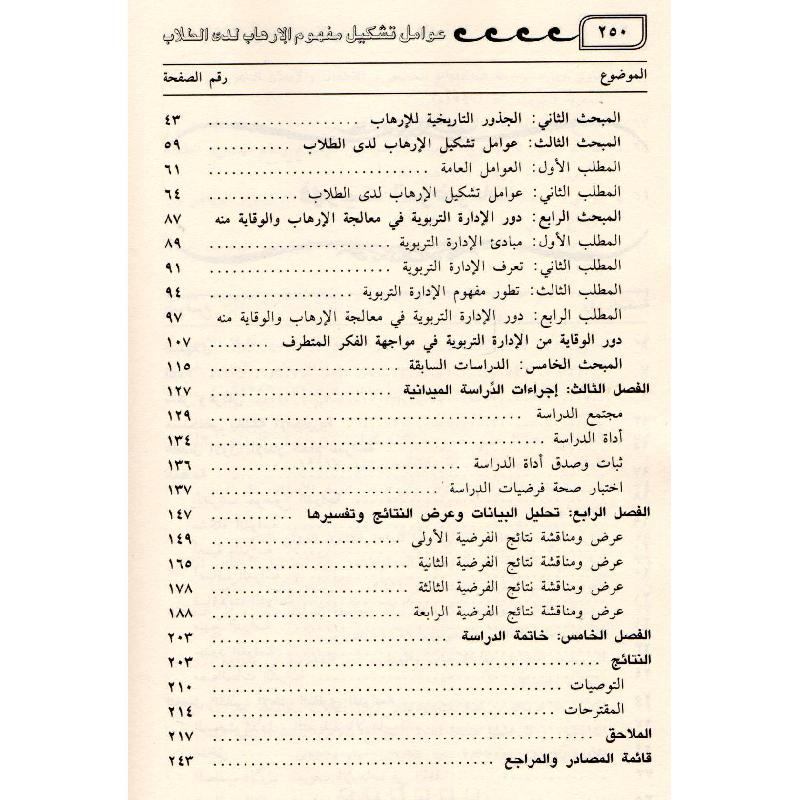 ٢٥٠ عوامل تشكيل مفهوم الإرهاب لدى الطلاب
الموضوع رقم الصفحة
المبحث الثاني: الجذور التاريخية للإرهاب ..................... ٤٣
المبحث الثالث: عوامل تشكيل الإرهاب لدى الطلاب ........... ٥٩
المطلب الأول: العوامل العامة .............................. ٦١
المطلب الثاني: عوامل تشكيل الإرهاب لدى الطلاب ............ ٦٤
المبحث الرابع: دور الإدارة التربوية في معالجة الإرهاب والوقاية منه ٨٧
المطلب الأول: مبادئ الإدارة التربوية ........................ ٨٩
المطلب الثاني: تعرف الإدارة التربوية ........................ ٩١
المطلب الثالث: تطور مفهوم الإدارة التربوية ................... ٩٤
المطلب الرابع: دور الإدارة التربوية في معالجة الإرهاب والوقاية منه ٩٧
دور الوقاية من الإدارة التربوية في مواجهة الفكر المتطرف ........ ١٠٧
المبحث الخامس: الدراسات السابقة ......................... ١١٥
الفصل الثالث: إجراءات الدراسة الميدانية ........................ ١٢٧
مجتمع الدراسة .......................................... ١٢٩
أداة الدراسة ............................................ ١٣٤
ثبات وصدق أداة الدراسة .................................. ١٣٦
اختبار صحة فرضيات الدراسة .............................. ١٣٧
الفصل الرابع: تحليل البيانات وعرض النتائج وتفسيرها ........... ١٤٧
عرض ومناقشة نتائج الفرضية الأولى ......................... ١٤٩
عرض ومناقشة نتائج الفرضية الثانية .......................... ١٦٥
عرض ومناقشة نتائج الفرضية الثالثة .......................... ١٧٨
عرض ومناقشة نتائج الفرضية الرابعة ......................... ١٨٨
الفصل الخامس: خاتمة الدراسة ................................ ٢٠٣
النتائج .................................................... ٢٠٣
التوصيات ............................................... ٢١٠
المقترحات .............................................. ٢١٤
الملاحق ................................................... ٢١٧
قائمة المصادر والمراجع ...................................... ٢٤٣